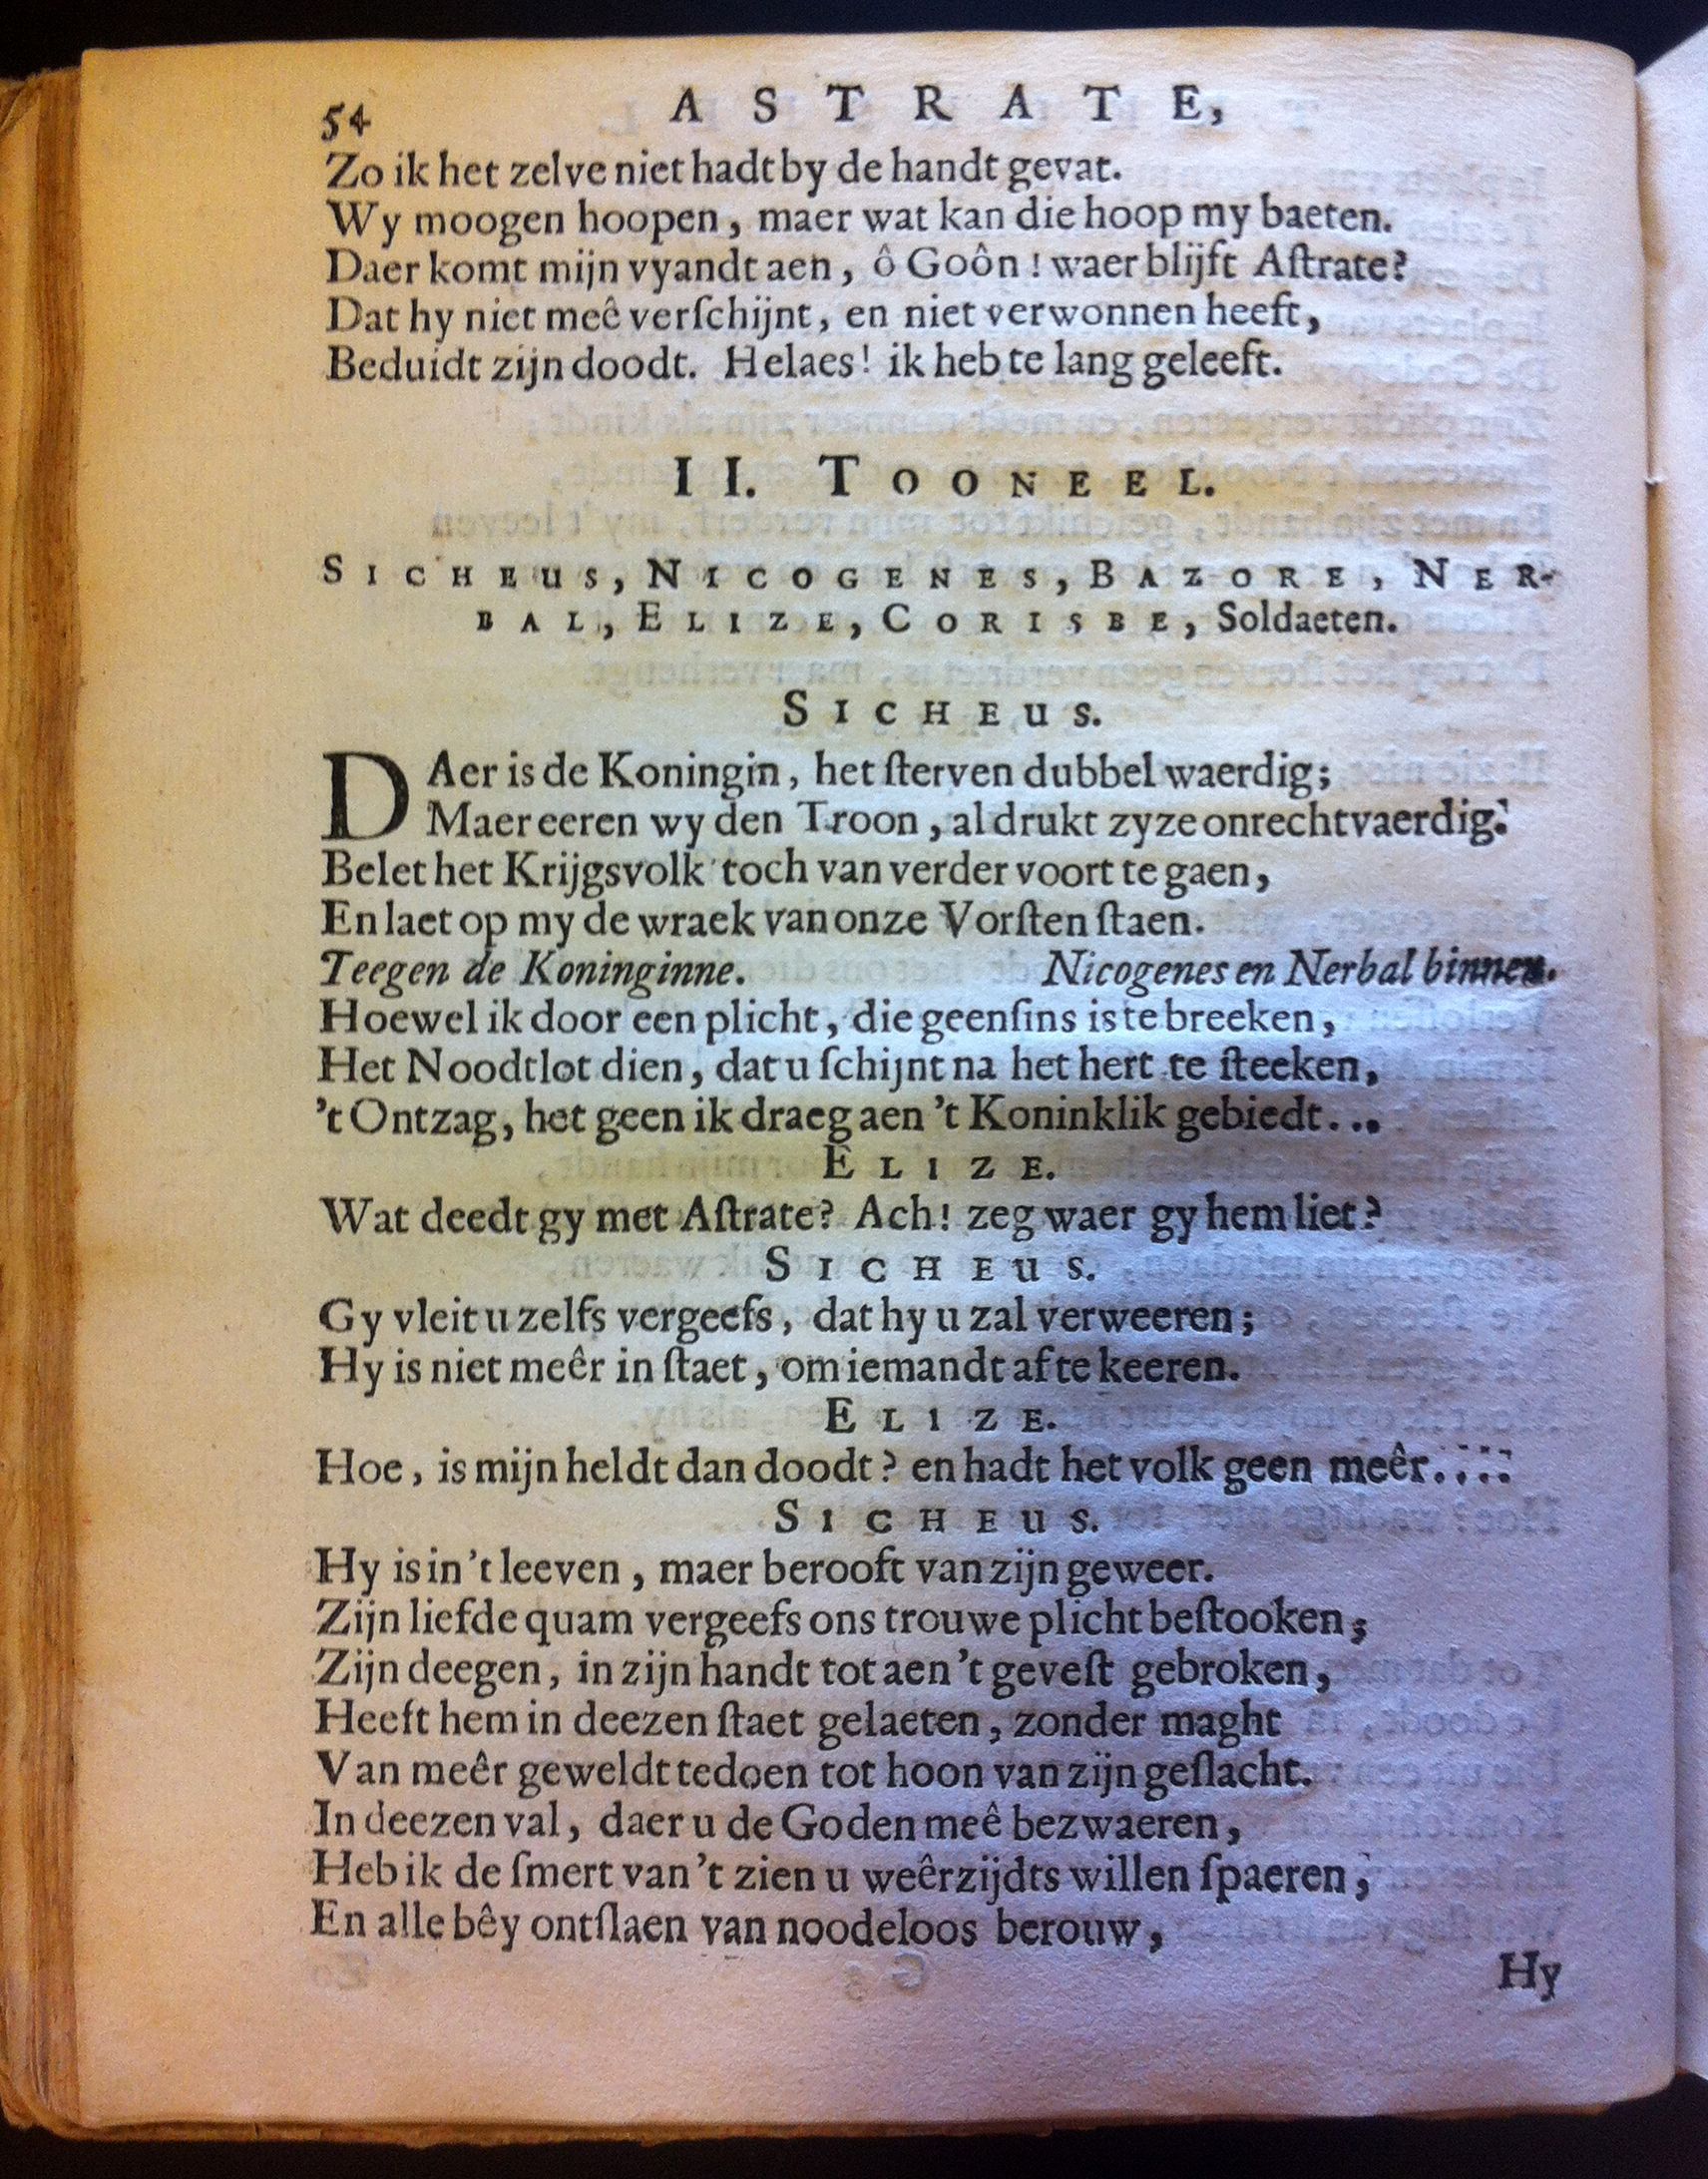 54 ASTRATE,
Zo ik het zelve niet hadt by de handt gevat.
Wy moogen hoopen, maer wat kan die hoop my baeten.
Daer komt mijn vyandt aen, ô Goôn! waer blijft Aſtrate?
Dat hy niet meê verſchijnt, en niet verwonnen heeft,
Beduidt zijn doodt. Helaes! ik heb te lang geleeft.
II. TOONEEL.
SICHEUS, NICOGENES, BAZORE, NER-
BAL, ELIZE, CORISBE, Soldaeten.
SICHEUS.
DAer is de Koningin, het ſterven dubbel waerdig;
Maer eeren wy den Troon, al drukt zy ze onrechtvaerdig.
Belet het Krijgsvolk toch van verder voort te gaen,
En laet op my de wraek van onze Vorſten ſtaen.
Teegen de Koninginne. Nicogenes en Nerbal binnen.
Hoewel ik door een plicht, die geenſins is te breeken,
Het Noodtlot dien, dat u ſchijnt na het hert te ſteeken,
't Ontzag, het geen ik draeg aen 't Koninklik gebiedt...
ELIZE.
Wat deedt gy met Aſtrate? Ach! zeg waer gy hem liet?
SICHEUS.
Gy vleit u zelfs vergeefs, dat hy u zal verweeren;
Hy is niet meêr in ſtaet, om iemandt af te keeren.
ELIZE.
Hoe, is mijn heldt dan doodt? en hadt het volk geen meêr....
SICHEUS.
Hy is in 't leeven, maer berooft van zijn geweer.
Zijn liefde quam vergeefs ons trouwe plicht beſtooken;
Zijn deegen, in zijn handt tot aen 't geveſt gebroken,
Heeft hem in deezen ſtaet gelaeten, zonder maght
Van meêr geweldt te doen tot hoon van zijn geſlacht.
In deezen val, daer u de Goden meê bezwaeren,
Heb ik de ſmert van 't zien u weêrzijdts willen ſpaeren;
En alle bêy ontſlaen van noodeloos berouw,
Hy